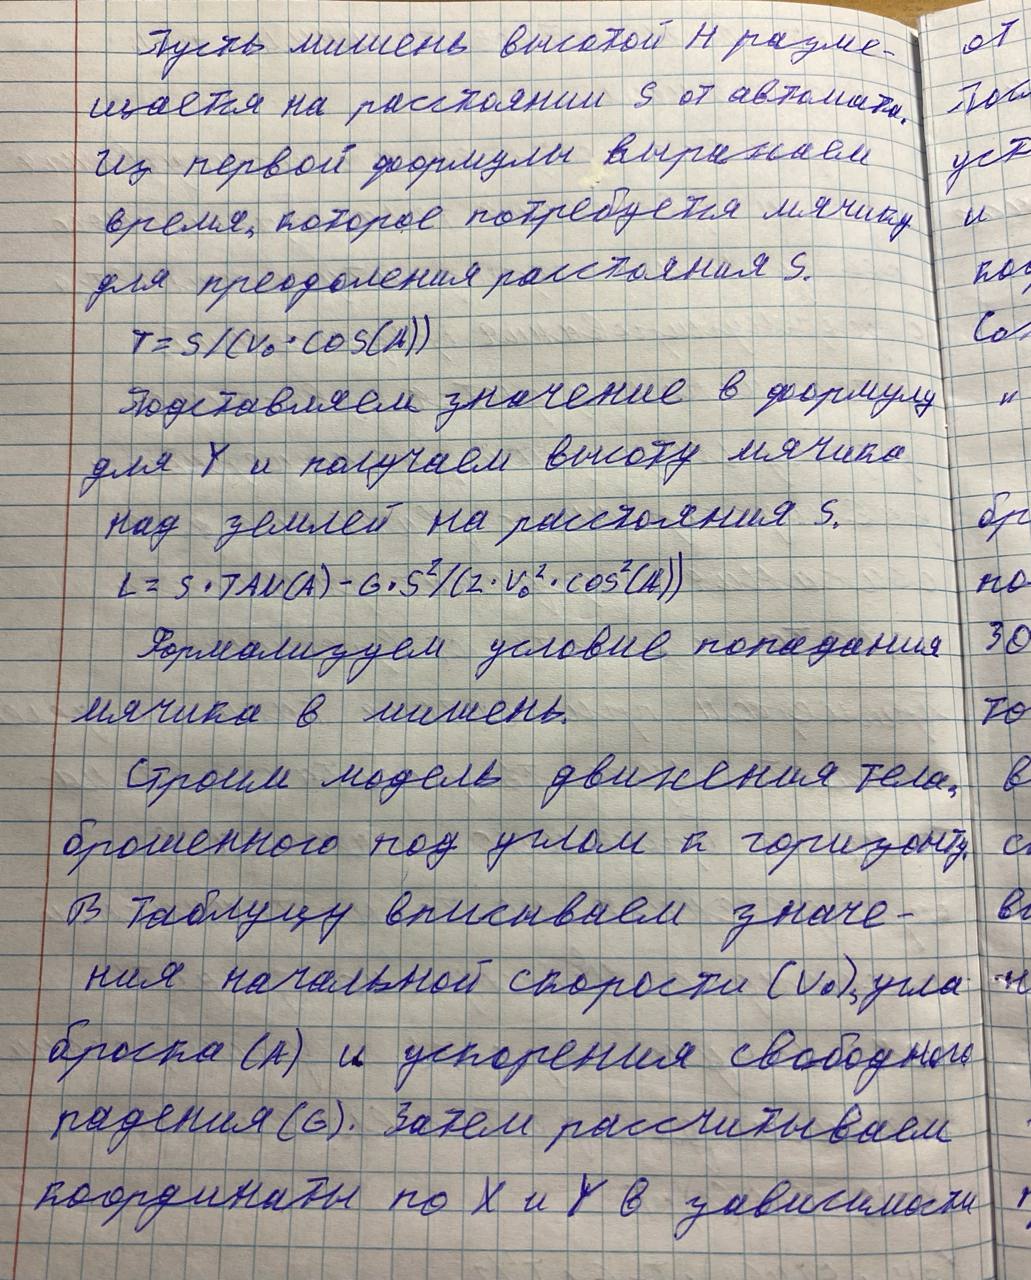 Пусть мишень высотой H разме-
щается на расстоянии S от автомата.
Из первой формулы выражаем
время, которое потребуется мячику
для преодоления расстояния S.
T = S/(V₀ · COS(A))
Подставляем значение в формулу
для Y и получаем высоту мячика
над землей на расстояния S.
L = S · TAN(A) - G · S²/(2 · V₀² · COS²(A))
Формализуем условие попадания
мячика в мишень.
Строим модель движения тела,
брошенного под углом к горизонту.
В таблуцу вписываем значе-
ния начальной скорости (V₀), угла
броска (A) и ускорения свободного
падения (G). Затем рассчитываем
координаты по X и Y в зависимости
от
и
30
в